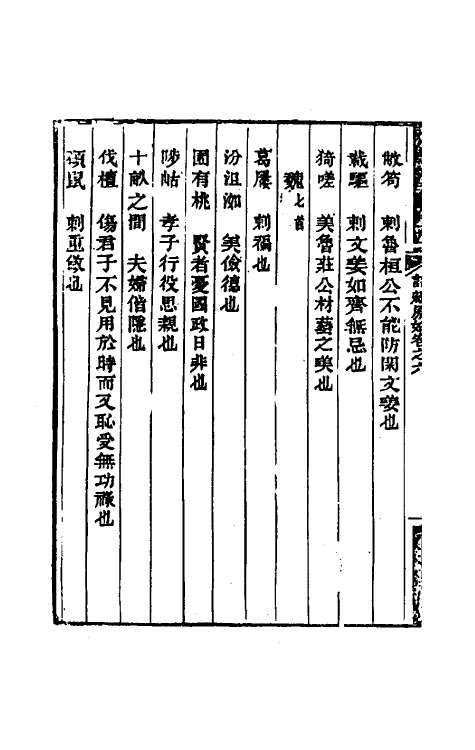 敝笱　刺魯桓公不能防閑文姜也
載驅　刺文姜如齊無忌也
猗嗟　美魯莊公材藝之美也
魏七首
葛屨　刺褊也
汾沮洳　美儉德也
園有桃　賢者憂國政日非也
陟岵　孝子行役思親也
十畝之間　夫婦偕隱也
伐檀　傷君子不見用於時而又恥受無功祿也
碩鼠　刺重斂也
詩經原始卷之六